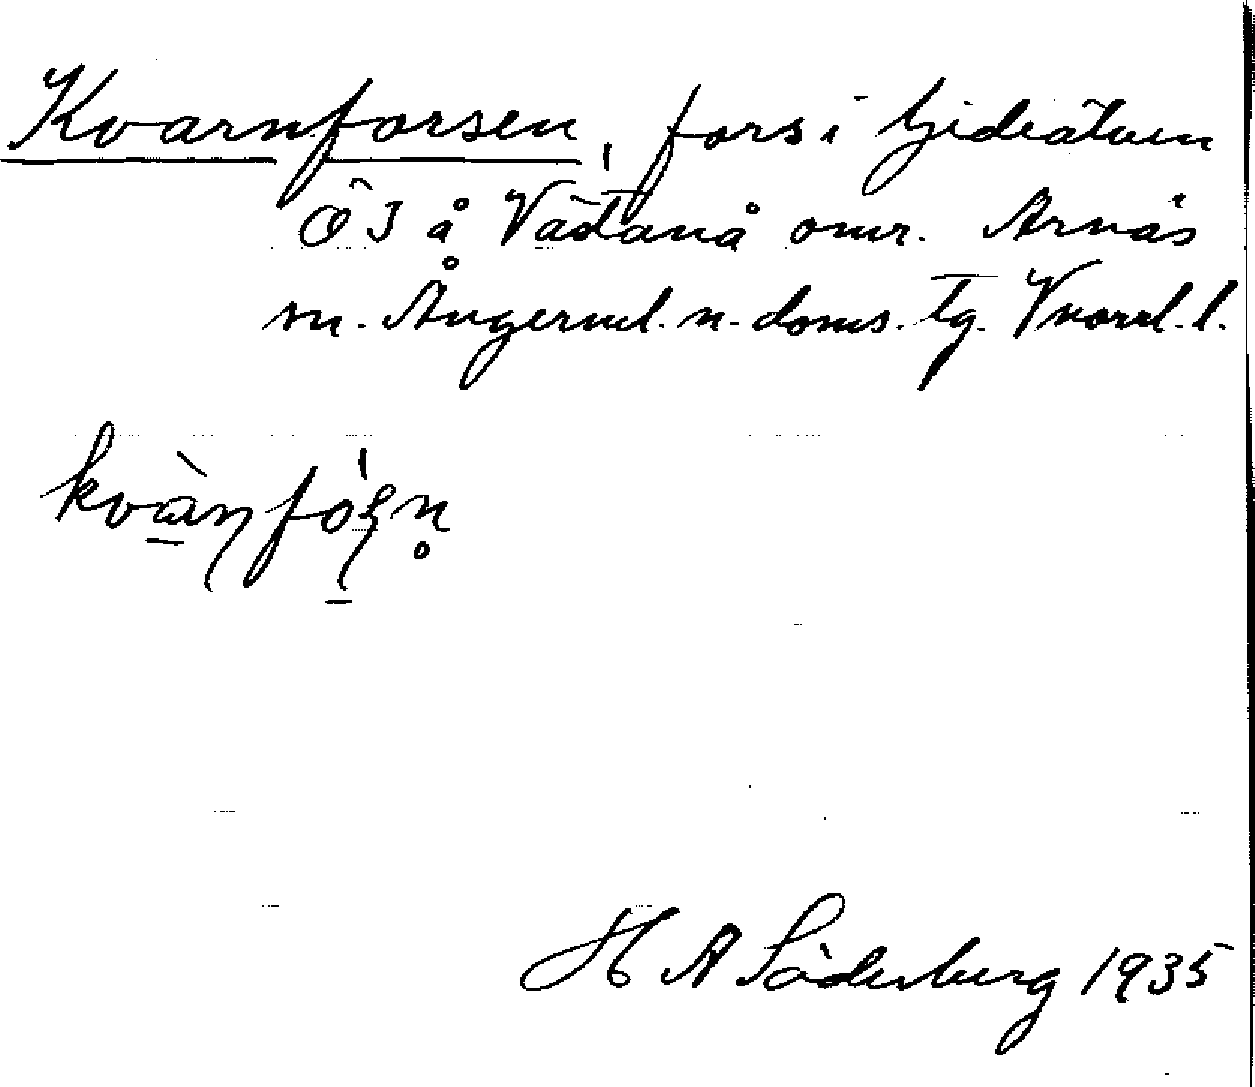 Kvarnforsen, fors i Gideälven
ÖJ å Västanå omr. Arnäs
sn. Ångerml. n. doms. tg. Vnorrl. l.
kvàɳfóʂn̥
H A Söderberg 1935